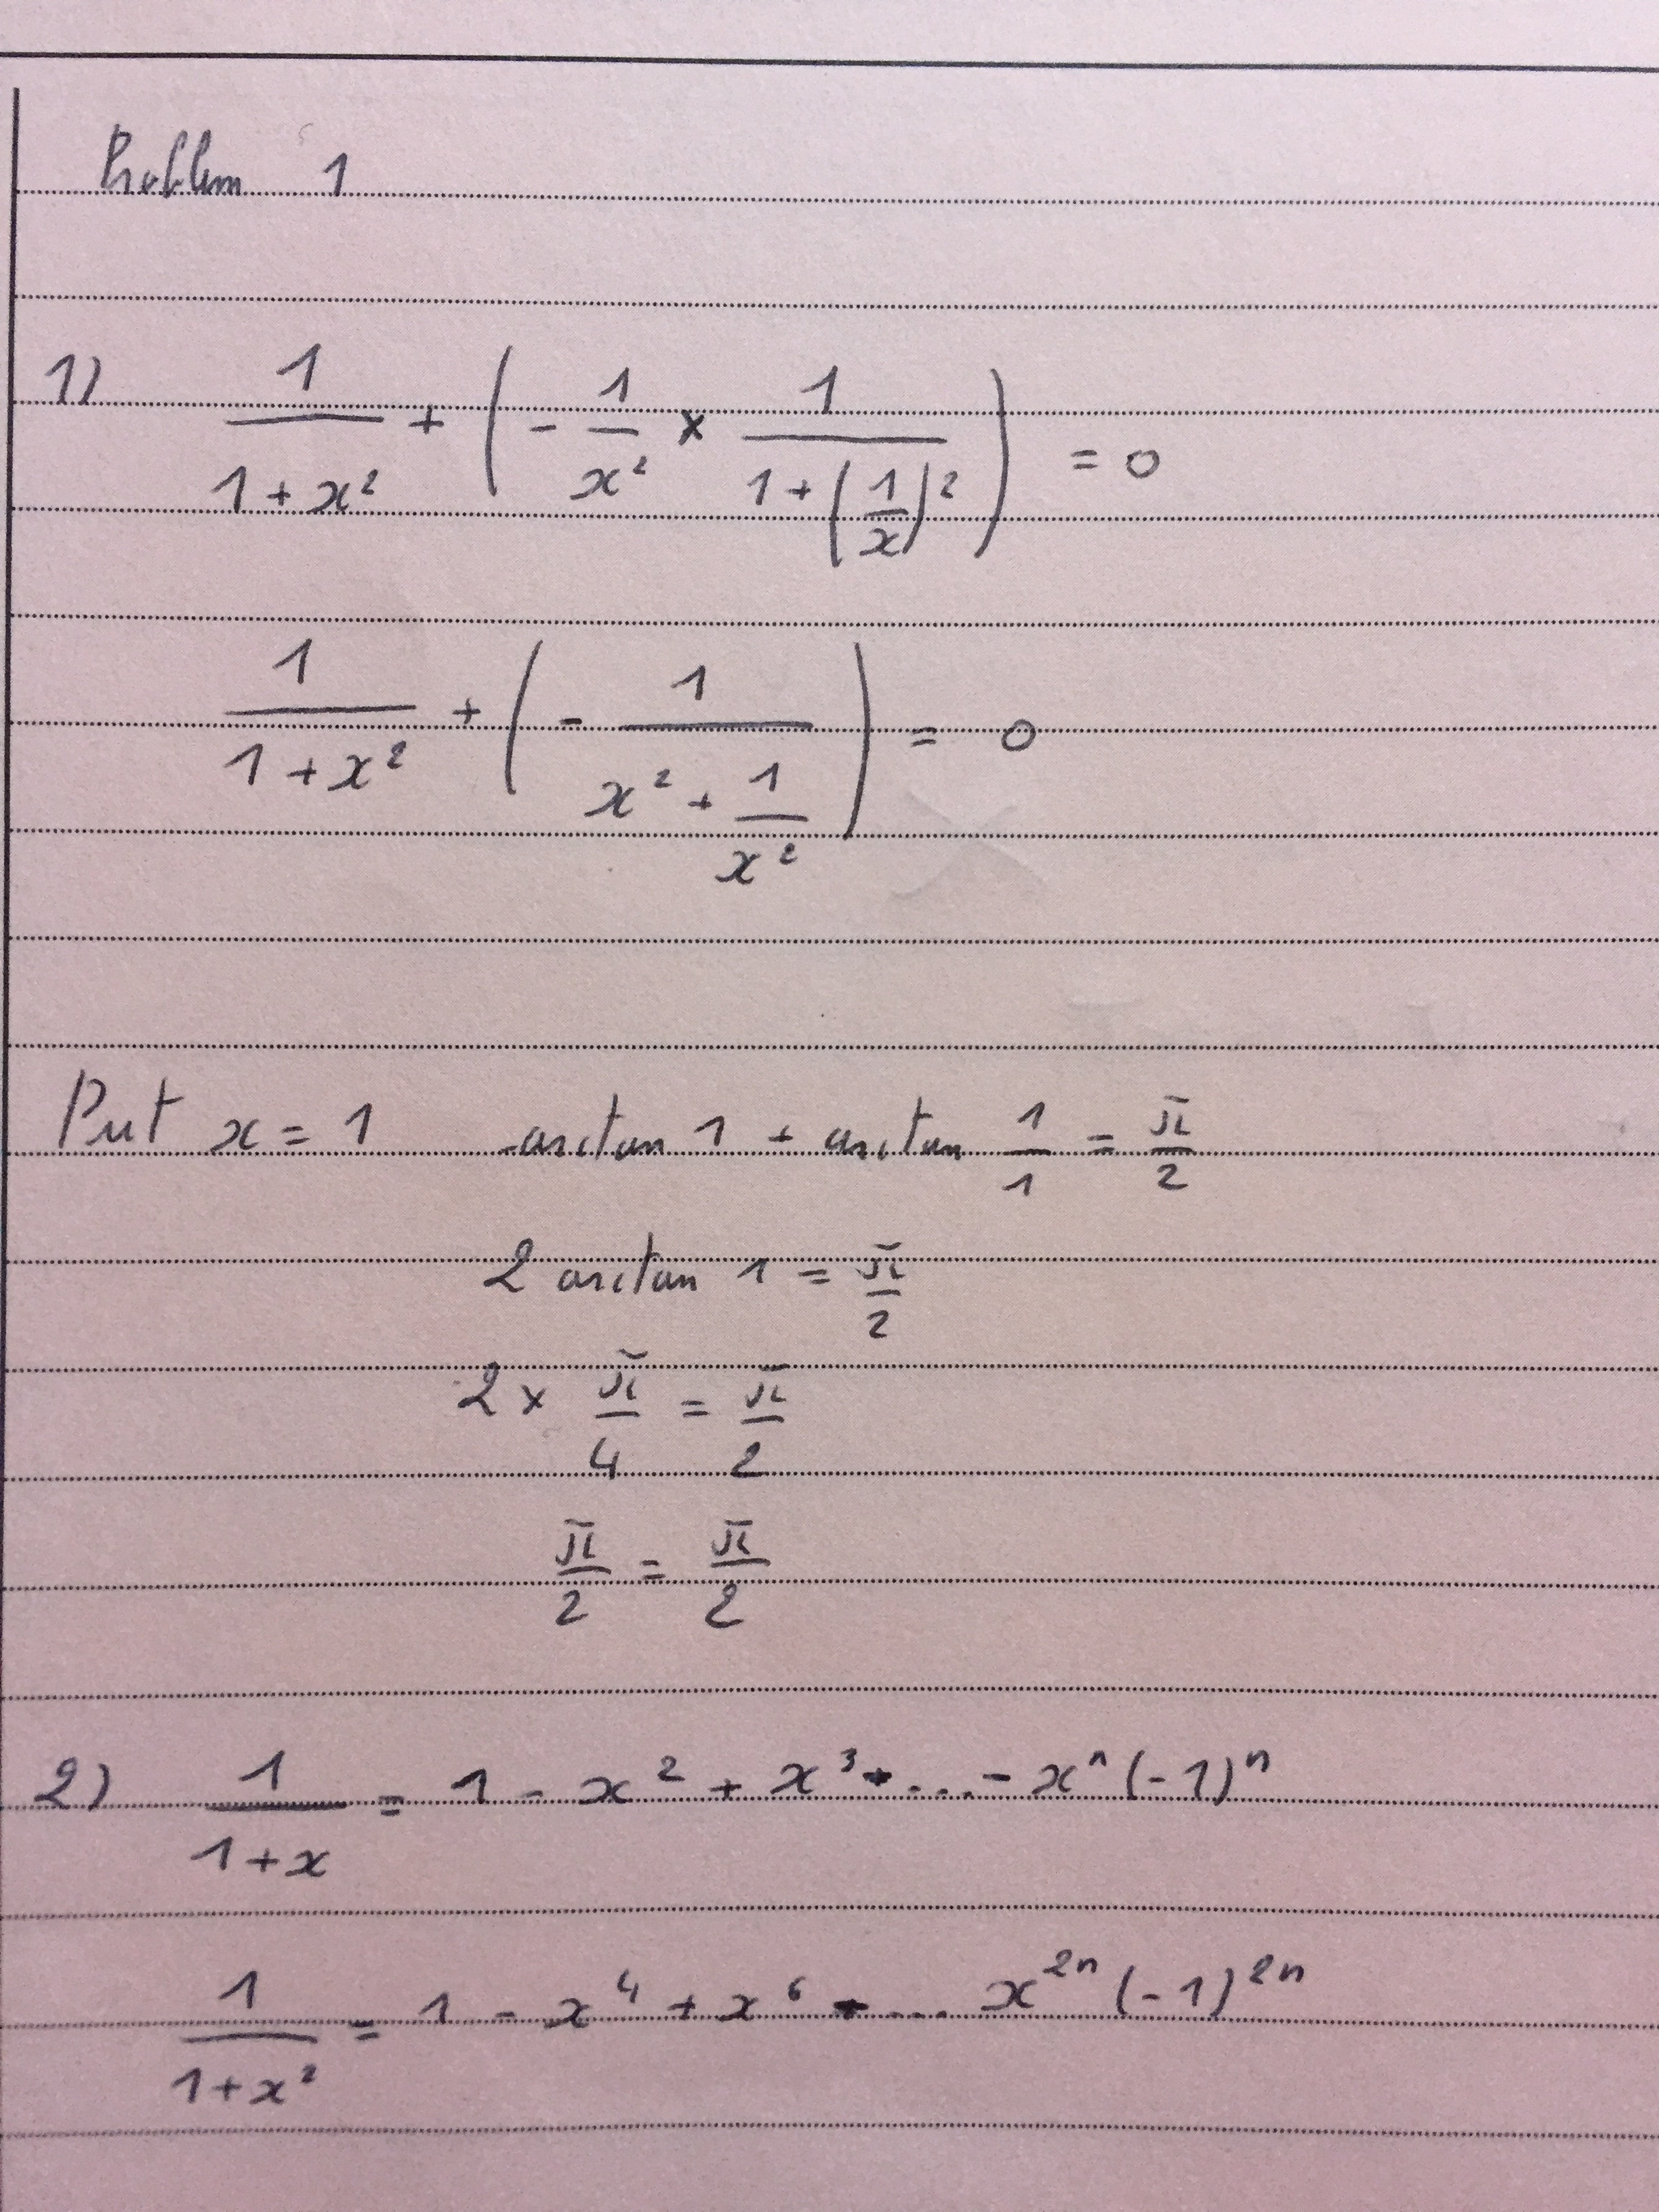 Problem 1
1) 1/(1+x²) + (- 1/x² × 1/(1+(1/x)²)) = 0
1/(1+x²) + (- 1/(x² + 1/x²)) = 0
Put x = 1 arctan 1 + arctan 1/1 = π/2
2 arctan 1 = π/2
2 × π/4 = π/2
π/2 = π/2
2) 1/(1+x) = 1 - x² + x³ - ... - xⁿ (-1)ⁿ
1/(1+x²) = 1 - x⁴ + x⁶ - ... x²ⁿ (-1)²ⁿ